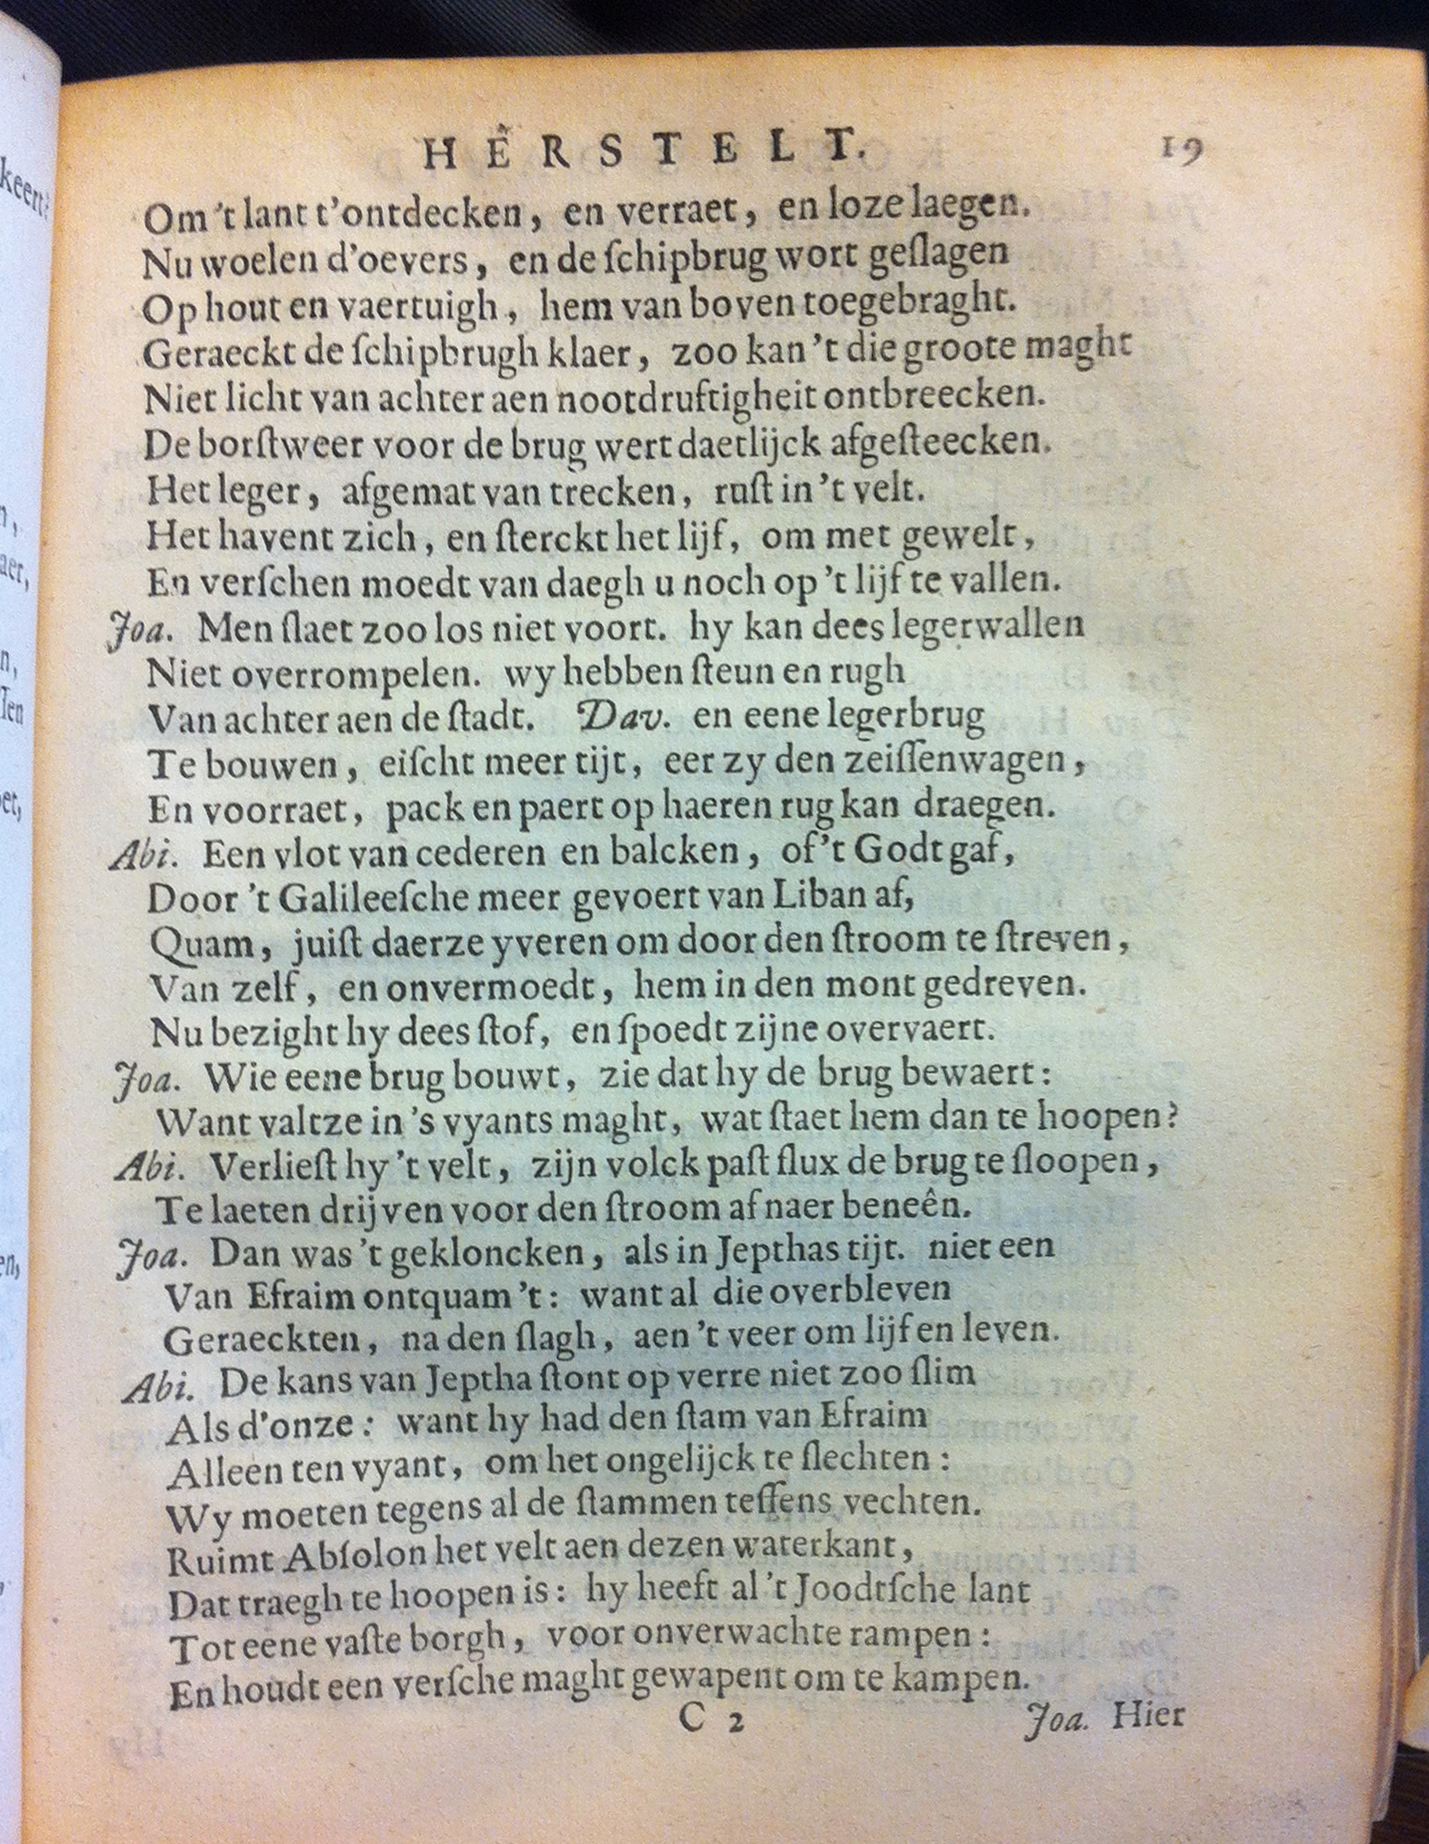 HÊRSTELT. 19
Om 't lant t'ontdecken, en verraet, en loze laegen.
Nu woelen d'oevers, en de ſchipbrug wort geſlagen
Op hout en vaertuigh, hem van boven toegebraght.
Geraeckt de ſchipbrugh klaer, zoo kan 't die groote maght
Niet licht van achter aen nootdruftigheit ontbreecken.
De borſtweer voor de brug wert daetlijck afgeſteecken.
Het leger, afgemat van trecken, ruſt in 't velt.
Het havent zich, en ſterckt het lijf, om met gewelt,
En verſchen moedt van daegh u noch op 't lijf te vallen.
Joa. Men ſlaet zoo los niet voort. hy kan dees legerwallen
Niet overrompelen. wy hebben ſteun en rugh
Van achter aen de ſtadt. Dav. en eene legerbrug
Te bouwen, eiſcht meer tijt, eer zy den zeiſſenwagen,
En voorraet, pack en paert op haeren rug kan draegen.
Abi. Een vlot van cederen en balcken, of 't Godt gaf,
Door 't Galileeſche meer gevoert van Liban af,
Quam, juiſt daerze yveren om door den ſtroom te ſtreven,
Van zelf, en onvermoedt, hem in den mont gedreven.
Nu bezight hy dees ſtof, en ſpoedt zijne overvaert.
Joa. Wie eene brug bouwt, zie dat hy de brug bewaert:
Want valtze in 's vyants maght, wat ſtaet hem dan te hoopen?
Abi. Verlieſt hy 't velt, zijn volck paſt flux de brug te ſloopen,
Te laeten drijven voor den ſtroom af naer beneên.
Joa. Dan was 't gekloncken, als in Jepthas tijt. niet een
Van Efraim ontquam 't: want al die overbleven
Geraeckten, na den ſlagh, aen 't veer om lijf en leven.
Abi. De kans van Jeptha ſtont op verre niet zoo ſlim
Als d'onze: want hy had den ſtam van Efraim
Alleen ten vyant, om het ongelijck te ſlechten:
Wy moeten tegens al de ſtammen teſſens vechten.
Ruimt Abſolon het velt aen dezen waterkant,
Dat traegh te hoopen is: hy heeft al 't Joodtſche lant
Tot eene vaſte borgh, voor onverwachte rampen:
En houdt een verſche maght gewapent om te kampen.
C 2 Joa. Hier